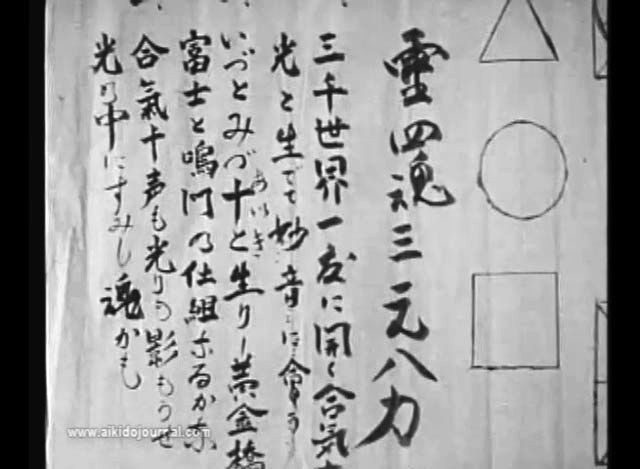 靈四魂三元八力
三千世界一度に開く合気
光と生でて妙音に
いづとみづ十と生りし黄金橋
あいき
富士と鳴門の仕組なるかな
合氣十声も光りの影もうせ
光の中にすみし魂かも
www.aikidojournal.com